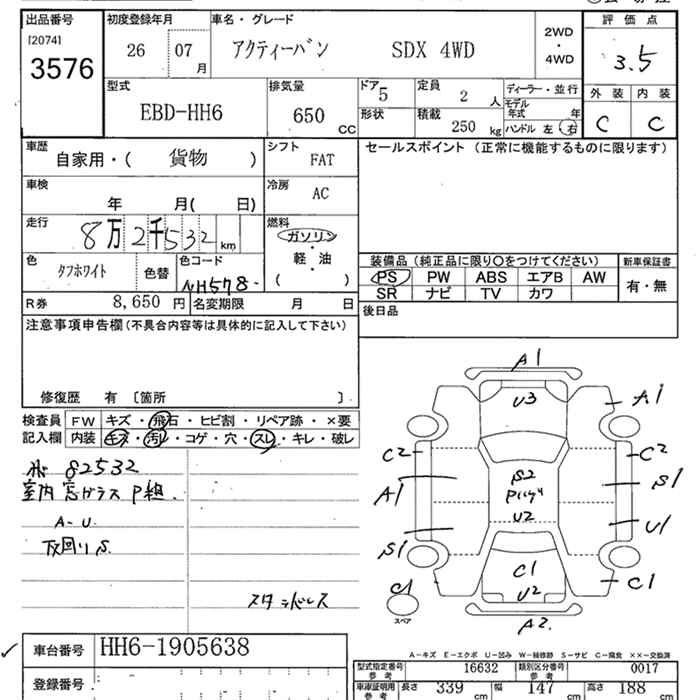 出品番号 初度登録年月 車名・グレード 評価点
[2074]
3576 26 07月 アクティーバン SDX 4WD 2WD・4WD 3.5
型式 排気量 ドア 5 定員 2 人 ディーラー・並行 外装 内装
EBD-HH6 650 CC 形状 積載 250 kg モデル年式 年 C C
ハンドル 左 右
車歴 自家用・( 貨物 ) シフト FAT セールスポイント (正常に機能するものに限ります)
車検 年 月( 日) 冷房 AC
走行 8万2千532 km 燃料 ガソリン・軽・油 ( )
装備品(純正品に限り○をつけてください) 新車保証書
色 タフホワイト 色替 色コード NH578 PS PW ABS エアB AW 有・無
SR ナビ TV カワ
R券 8,650 円 名変期限 月 日 後日品
注意事項申告欄(不具合内容等は具体的に記入して下さい)
修復歴 有 [箇所 ]
検査員 FW キズ・飛石・ヒビ割・リペア跡・×要
記入欄 内装 キズ・汚レ・コゲ・穴・スレ・キレ・破レ
82532
室内 窓ガラス P組.
A-U
下回りS
スタッドレス
A1
U3 A1
C2 C2
A1 S2 S1
U2 U1
S1
C1 C1 C1
U2
スペア
A2
A-キズ E-エクボ U-凹み W-補修跡 S-サビ C-腐食 ××-交換済
車台番号 HH6-1905638
型式指定番号 参考 16632 類別区分番号 参考 0017
登録番号
車庫証明用 参考 長さ 339 cm 幅 147 cm 高さ 188 cm